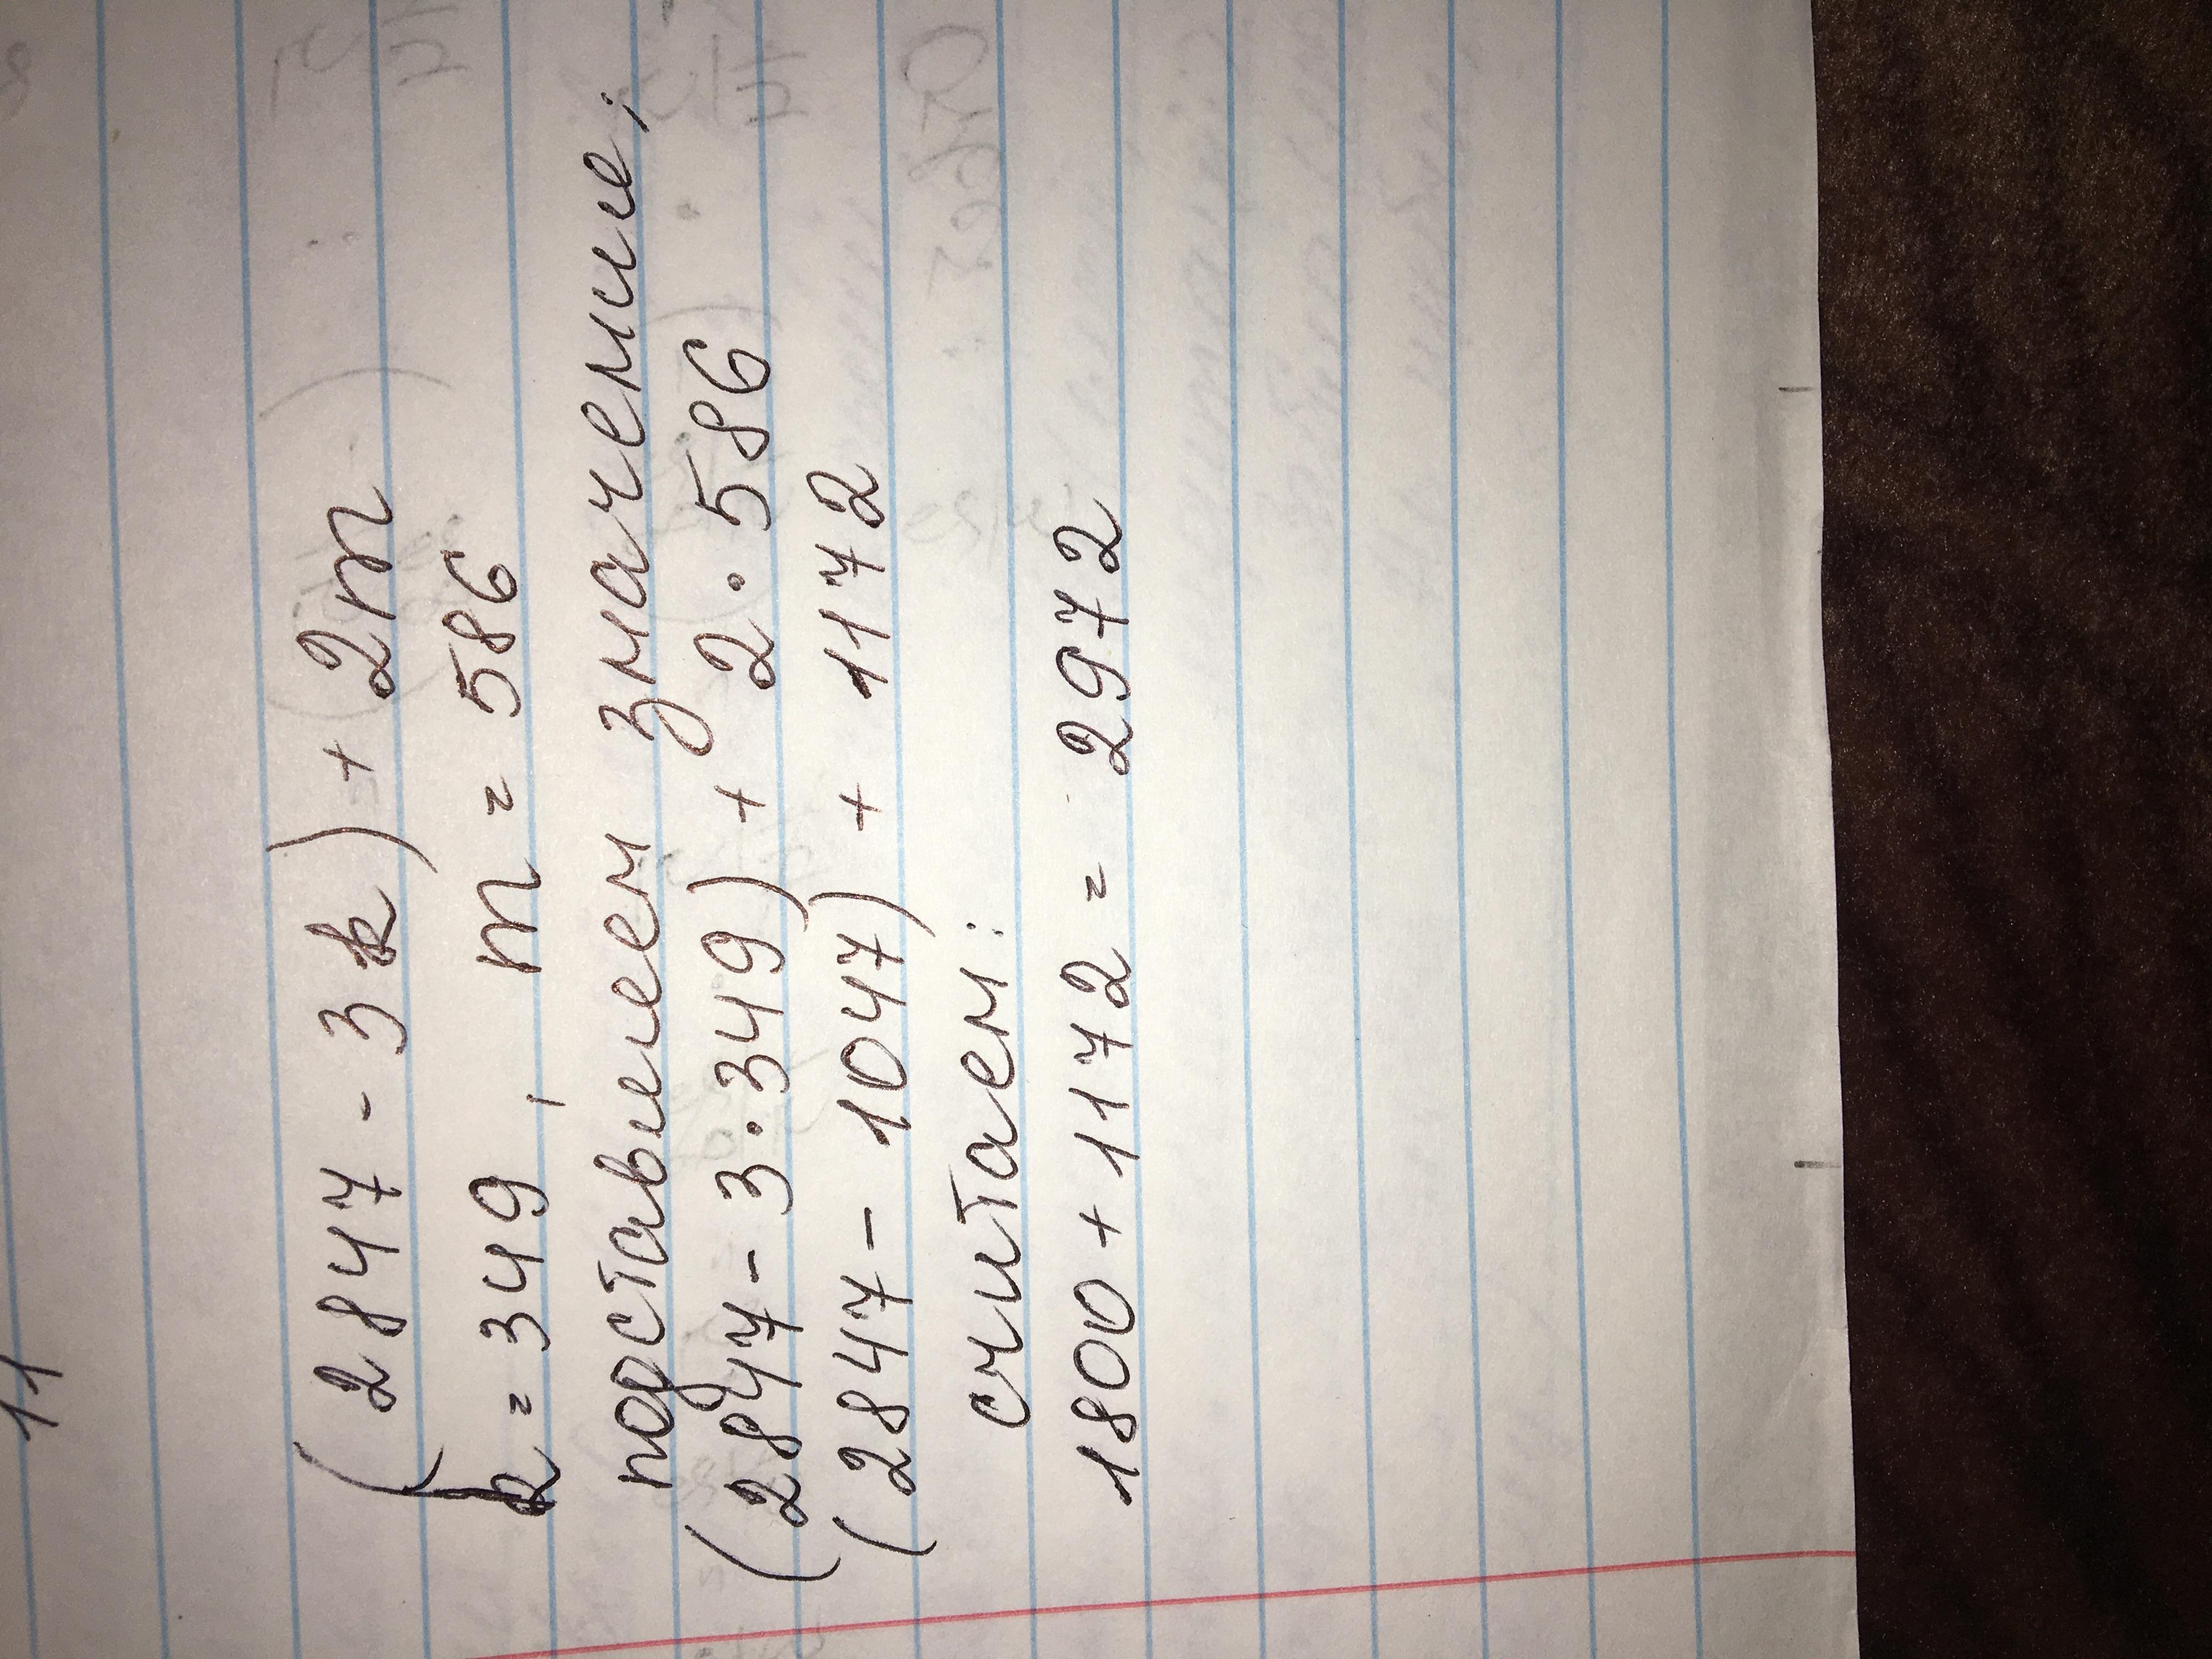 11
(2847 - 3k) + 2m
k = 349, m = 586
подставляем значение:
(2847 - 3·349) + 2·586
(2847 - 1047) + 1172
считаем:
1800 + 1172 = 2972